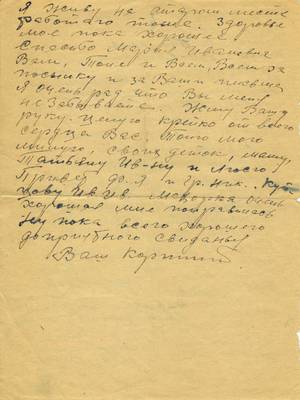 Я живу на старом месте
работаю тоже. Здоровье
мое пока хорошее.
Спасибо Мария Ивановна
Вам, Толе и Всем, Всем за
посылку и за Ваши письма
Я очень рад что Вы меня
не забываете. Жму Вашу
руку. Целую крепко от всего
сердца Вас, Толю моего
милого, своих деток, маму,
Татьяну Ив-ну и Люсю
Привет до. Я и Гр. Ник.
очень
хорошая мне понравилась
Ну пока всего хорошего
до приятного свиданья
Ваш